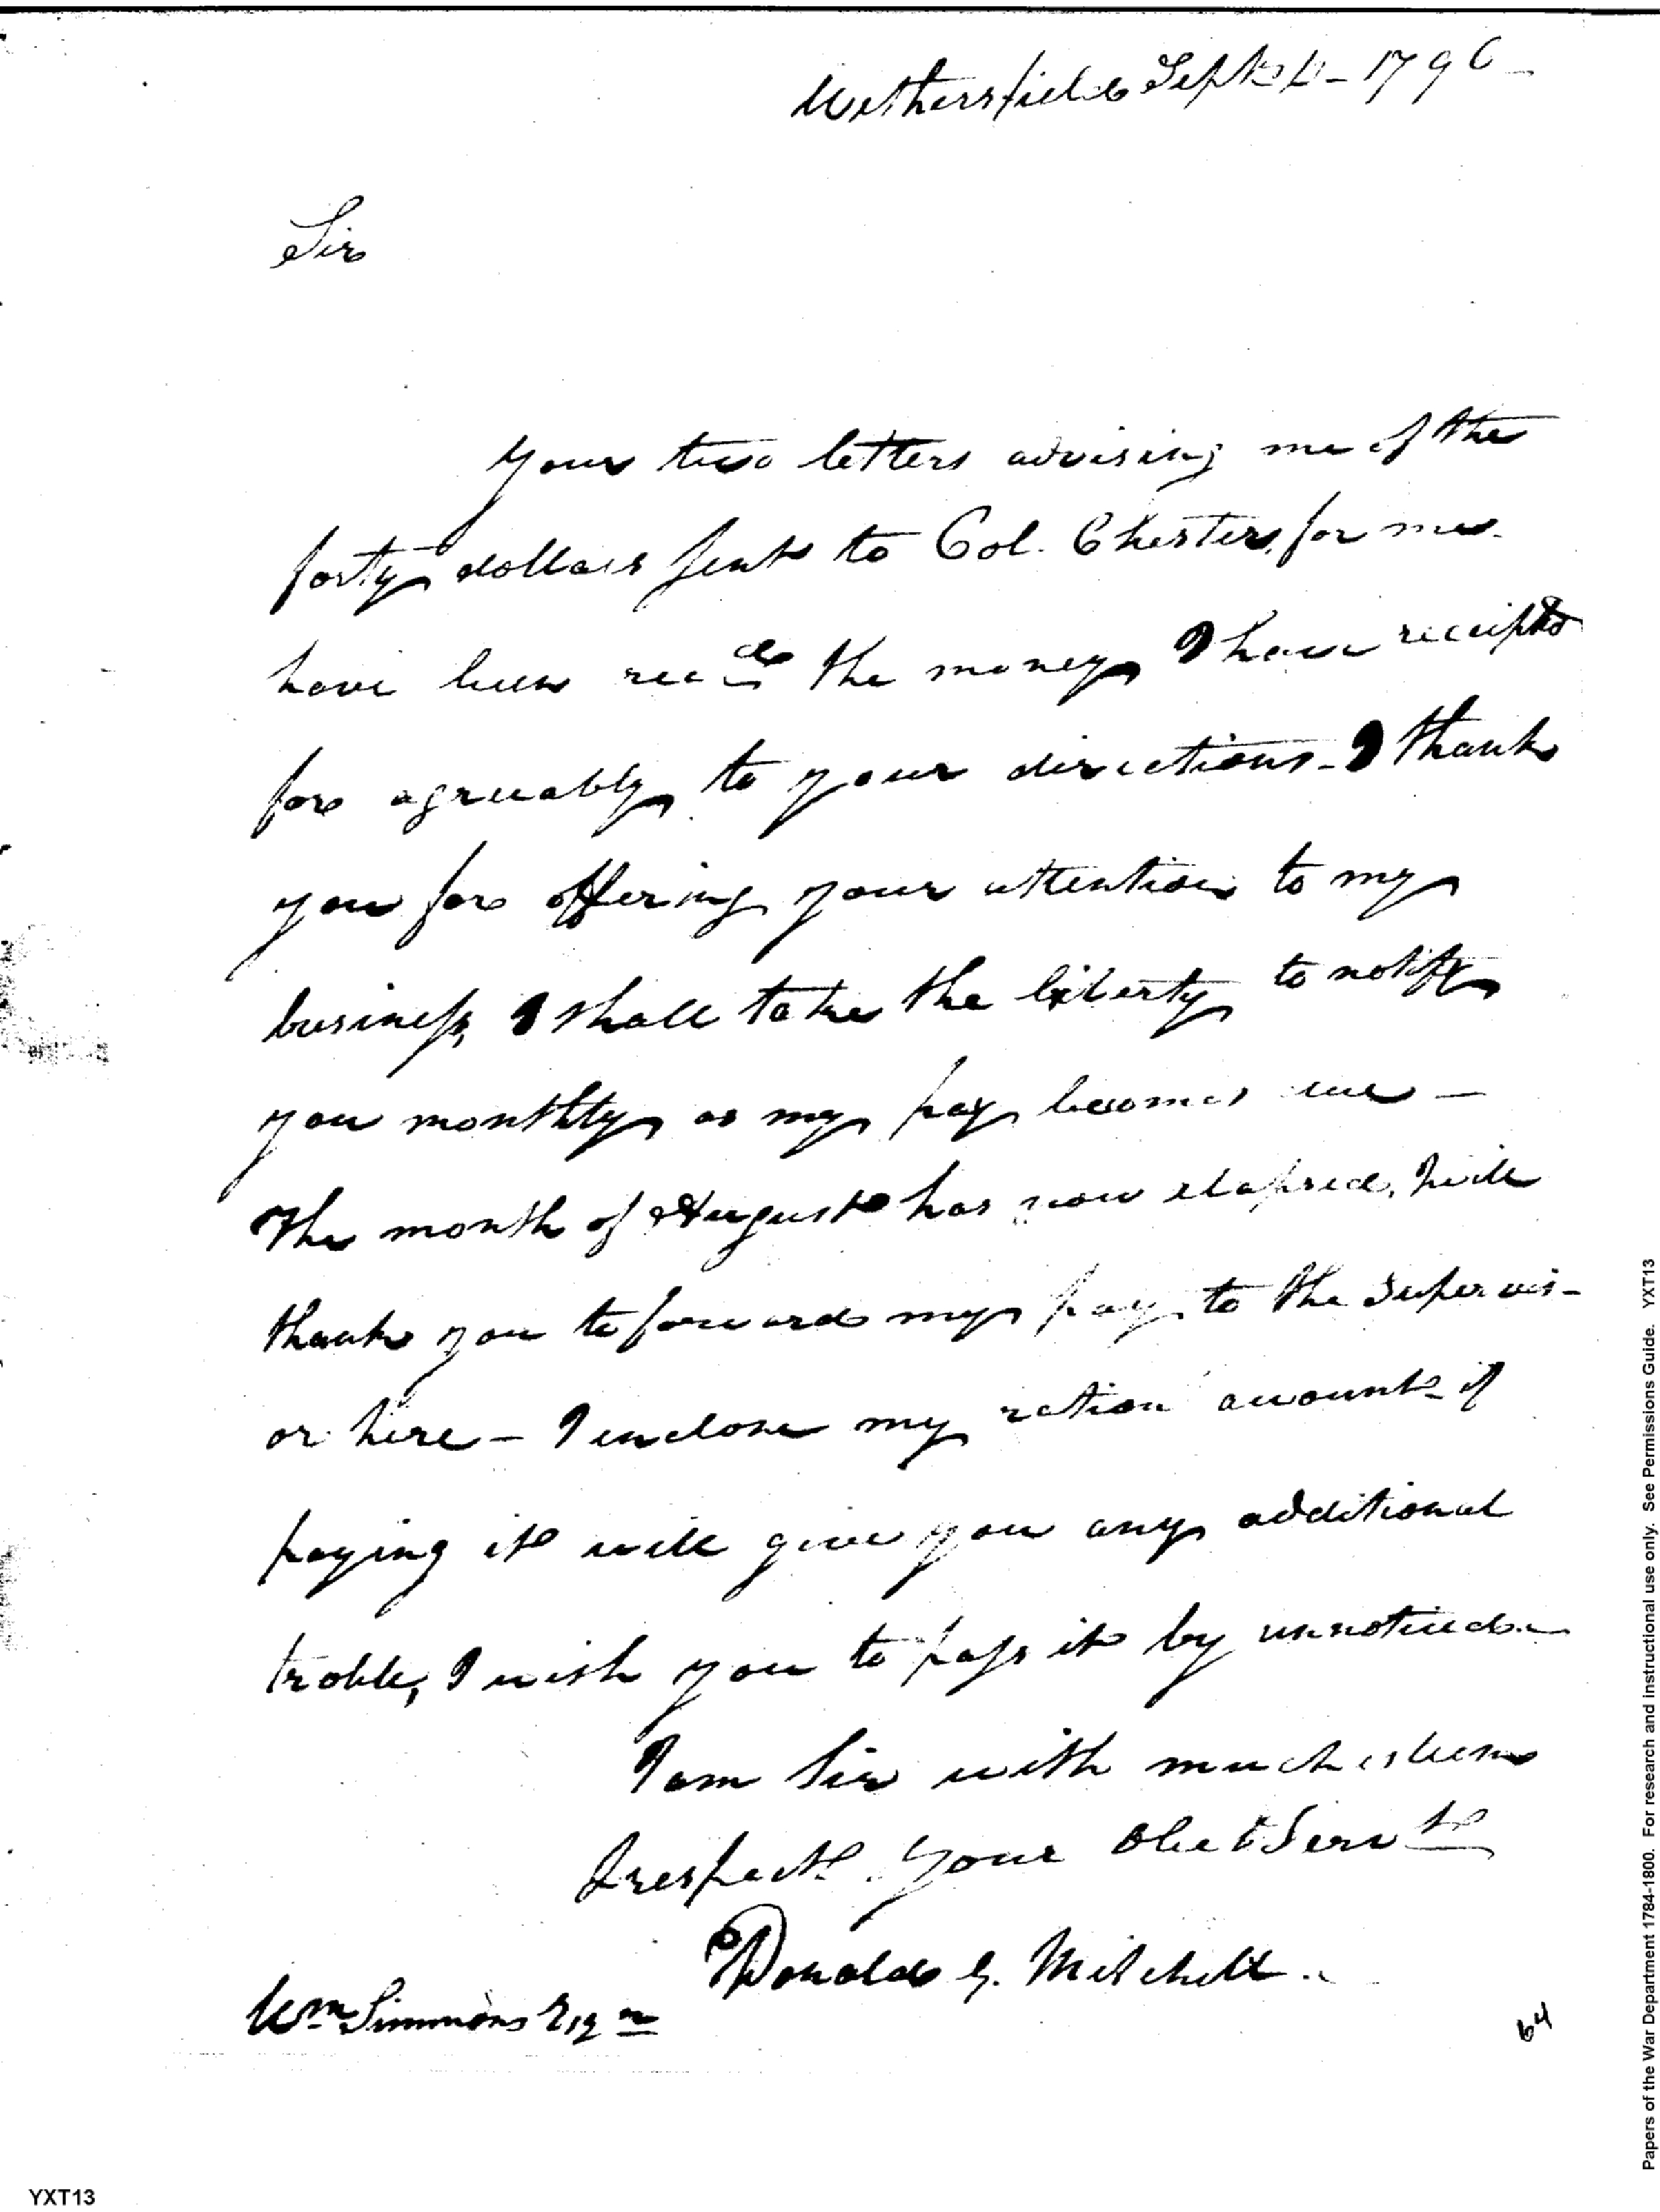 Wethersfield Sept 4 - 1796 -
Sir
Your two letters advising me of the
forty dollars sent to Col. Chester for me
have been recd the money I have receipted
for agreeably to your directions - I thank
you for offering your attention to my
business, I shall take the liberty to notify
you monthly as my pay becomes due -
The month of August has now elapsed, will
thank you to forward my pay to the supervis-
or here - I enclose my ration account if
paying it will give you any additional
troble, I wish you to pass it by unnoticed. -
I am Sir with much esteem
& respect Your Obet Servt
Donald G. Mitchell.
Wm Simmons Esqr
64
Papers of the War Department 1784-1800. For research and instructional use only. See Permissions Guide. YXT13
YXT13